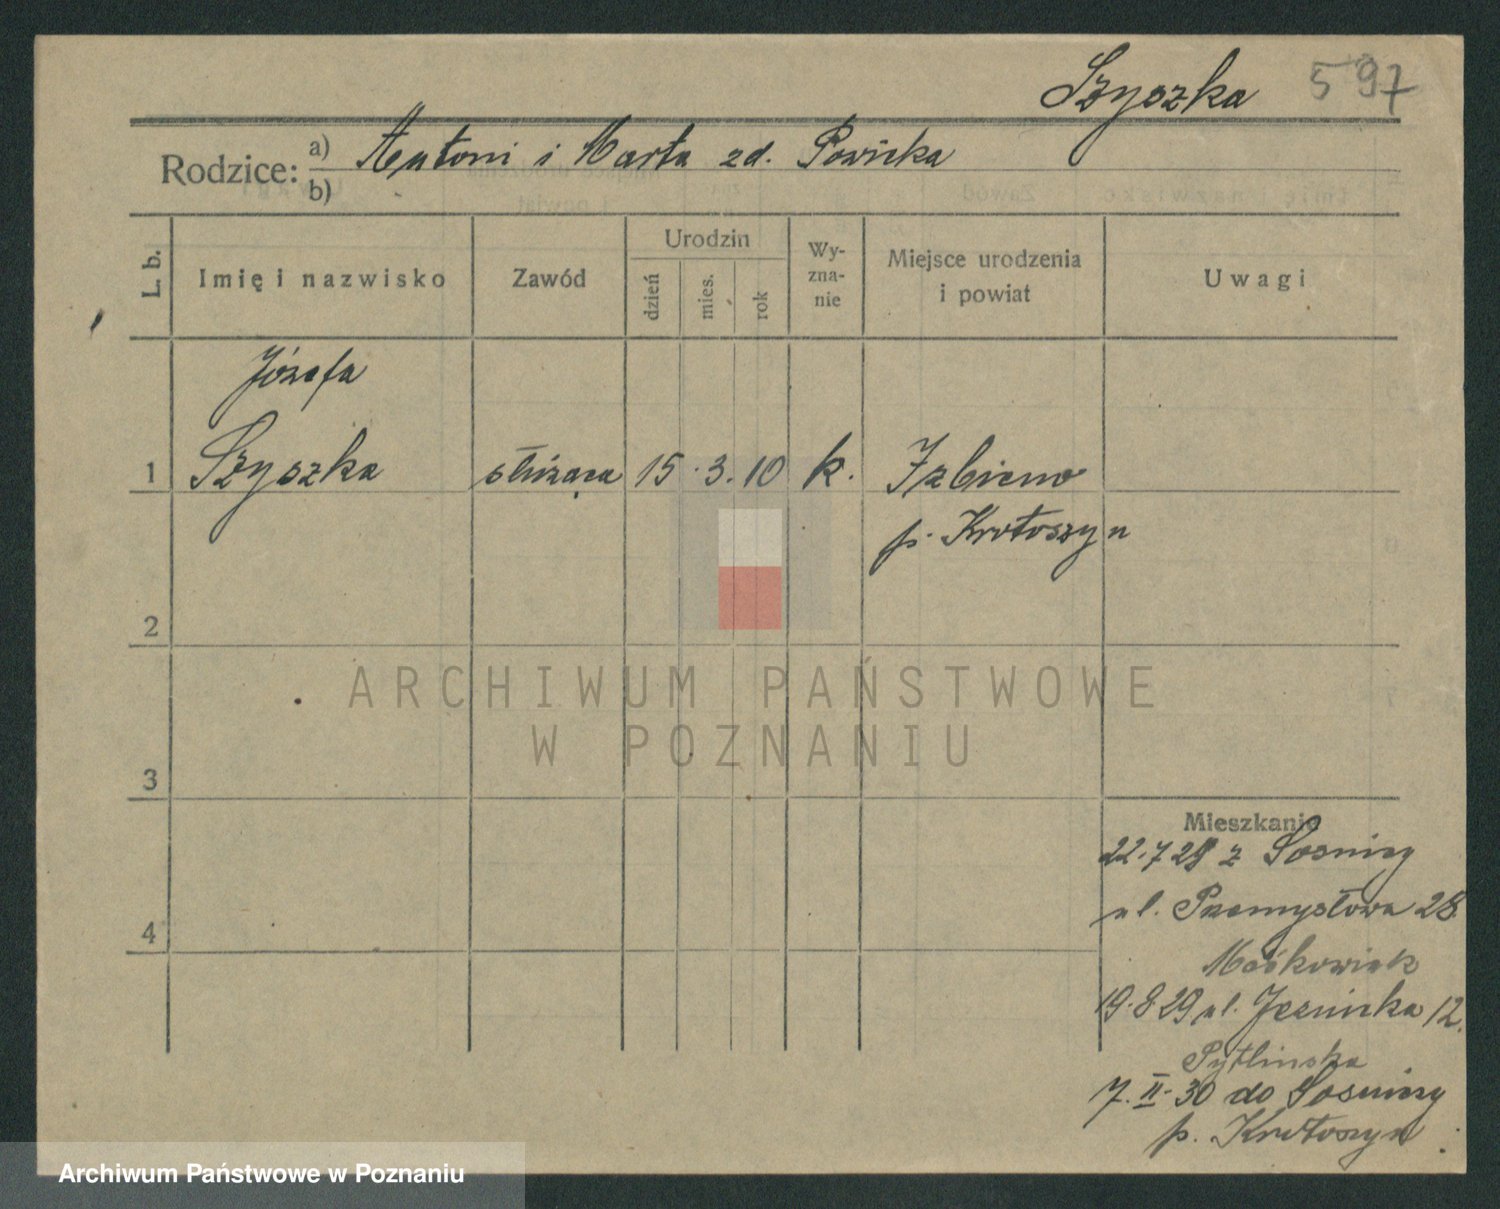 Szyszka 597
Rodzice: a) Antoni i Marta zd. Powicka
b)
L. b.
Imię i nazwisko
Zawód
Urodzin
dzień
mies.
rok
Wy-
zna-
nie
Miejsce urodzenia
i powiat
Uwagi
Józefa
1 Szyszka służąca 15 . 3. 10 k. Izbiczno
p. Krotoszyn
2
3
4
Mieszkanie
22.7 28 z Sośnicy
ul. Przemysłowa 28
Maćkowiak
19.8.29 ul. Jeżnicka 12.
Pytlinska
7. II. 30 do Sośnicy
p. Krotoszyn
ARCHIWUM PAŃSTWOWE
W POZNANIU
Archiwum Państwowe w Poznaniu